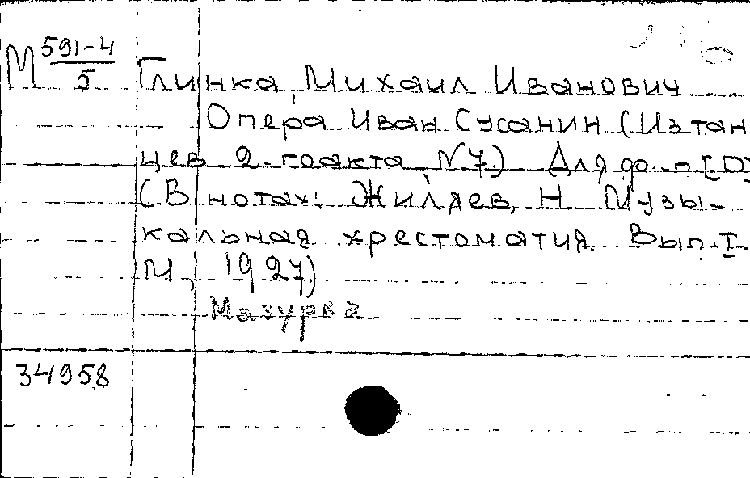 М 591-4/5
Глинка, Михаил Иванович
Опера Иван Сусанин (Из тан
цев 2-го акта N7.) Для
(В нотах: Жиляев, Н. Музы-
кальная хрестоматия. Вып. I
М., 1927)
Мазурка
34958